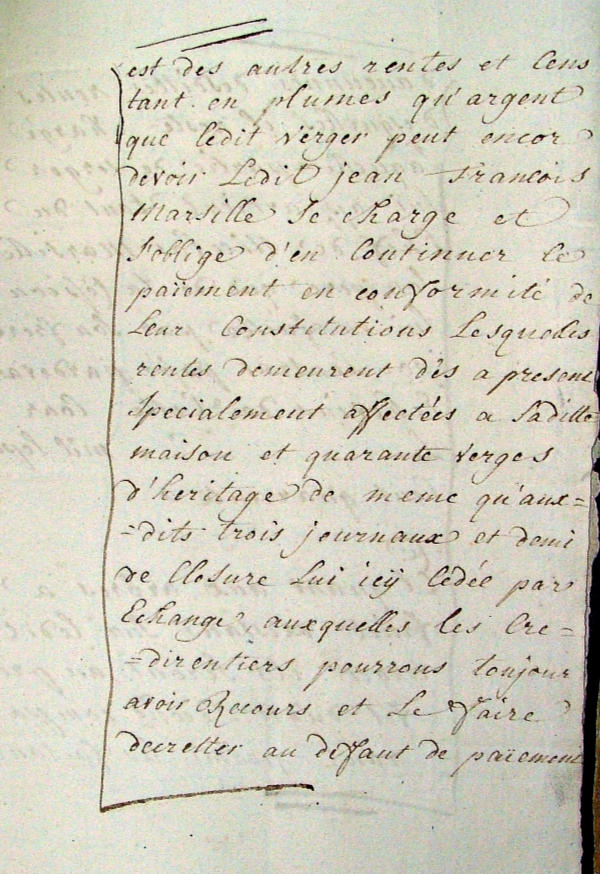 est des autres rentes et Cens
tant en plumes qu'argent
que ledit verger peut encor
devoir Ledit jean François
Marsille Se charge et
S'oblige d'en Continuer le
païement en conformité de
Leur Constitutions Lesquelles
rentes demeurent dès a present
Specialement affectées a Saditte
maison et quarante verges
d'heritage de meme qu'aux=
=dits trois journaux et demi
de Closure Lui icÿ Cédée par
Echange auxquelles les Cre=
=direntiers pourrons toujour
avoir Recours et Le faire
decretter au defaut de païement